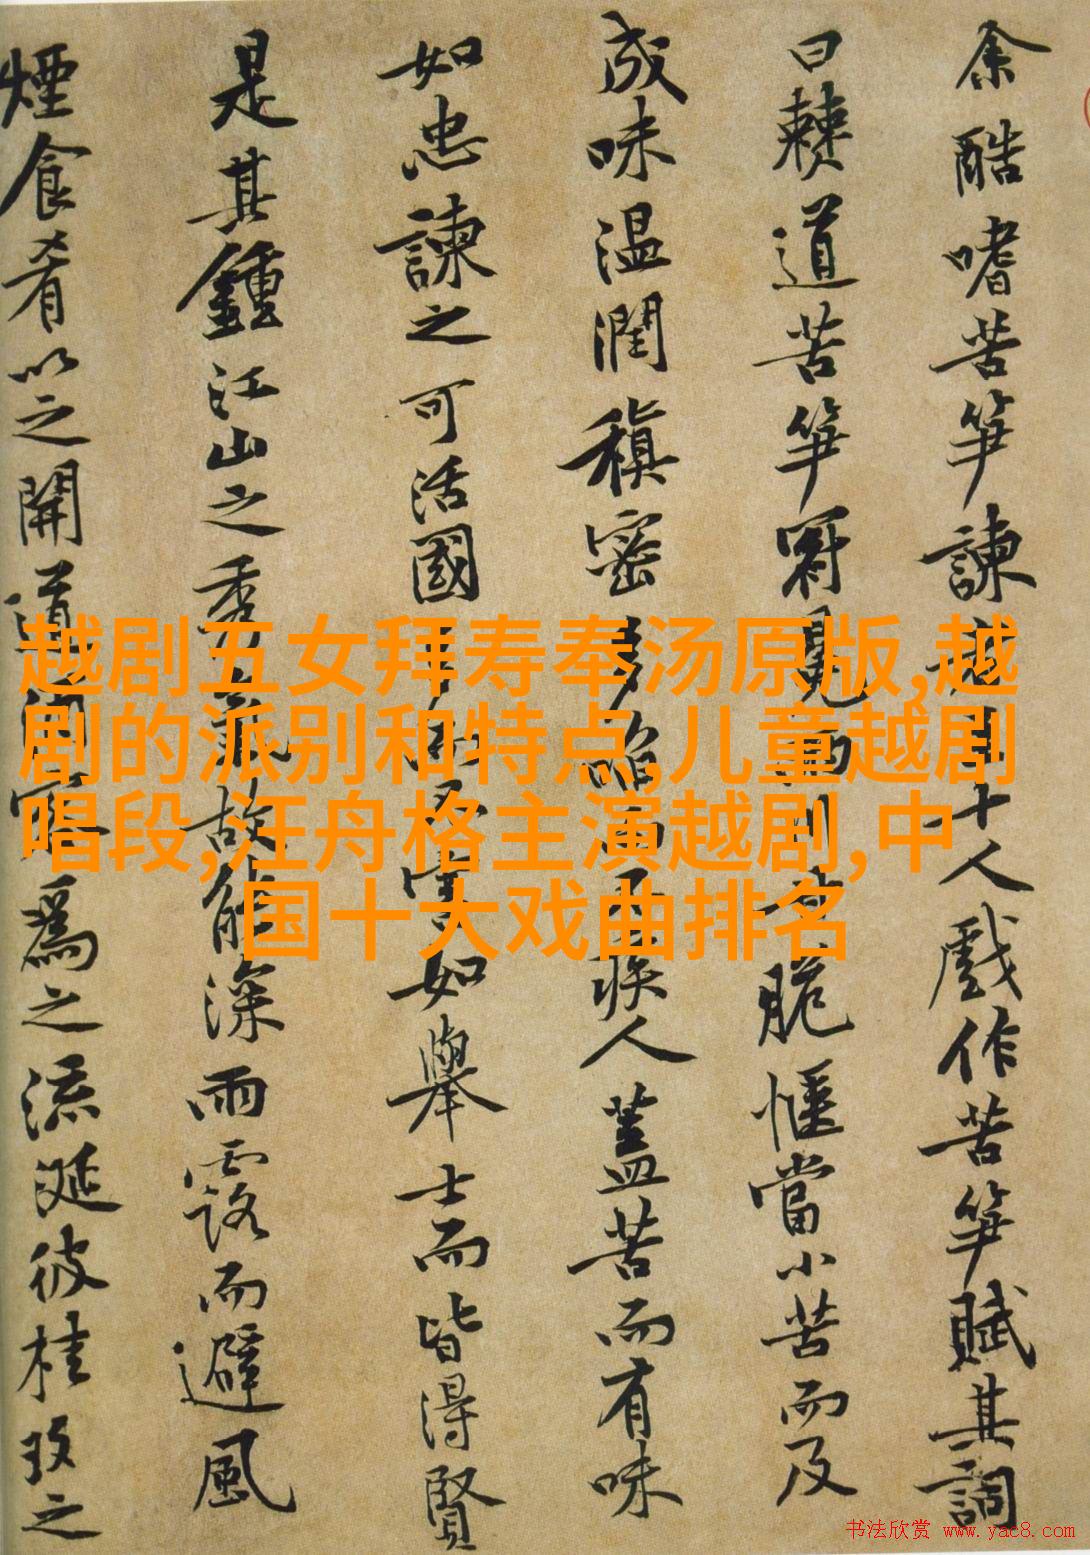 余酷嗜苦笋諫十人戲作苦笋賦其詞
曰棘道苦笋冠冕兩川脆愜當小苦而及
成味温潤稹密多啗而不疾人蓋苦而有味
如忠諫之可活國多而不害如舉士而皆得賢
是其鍾江山之秀氣故能深雨露而避風
煙食肴以之開道酒客爲之流涎彼桂玫之
越剧五女拜寿奉汤原版,越
剧的派别和特点,儿童越剧
唱段,汪舟格主演越剧,中
国十大戏曲排名
书法欣赏 www.yac8.com